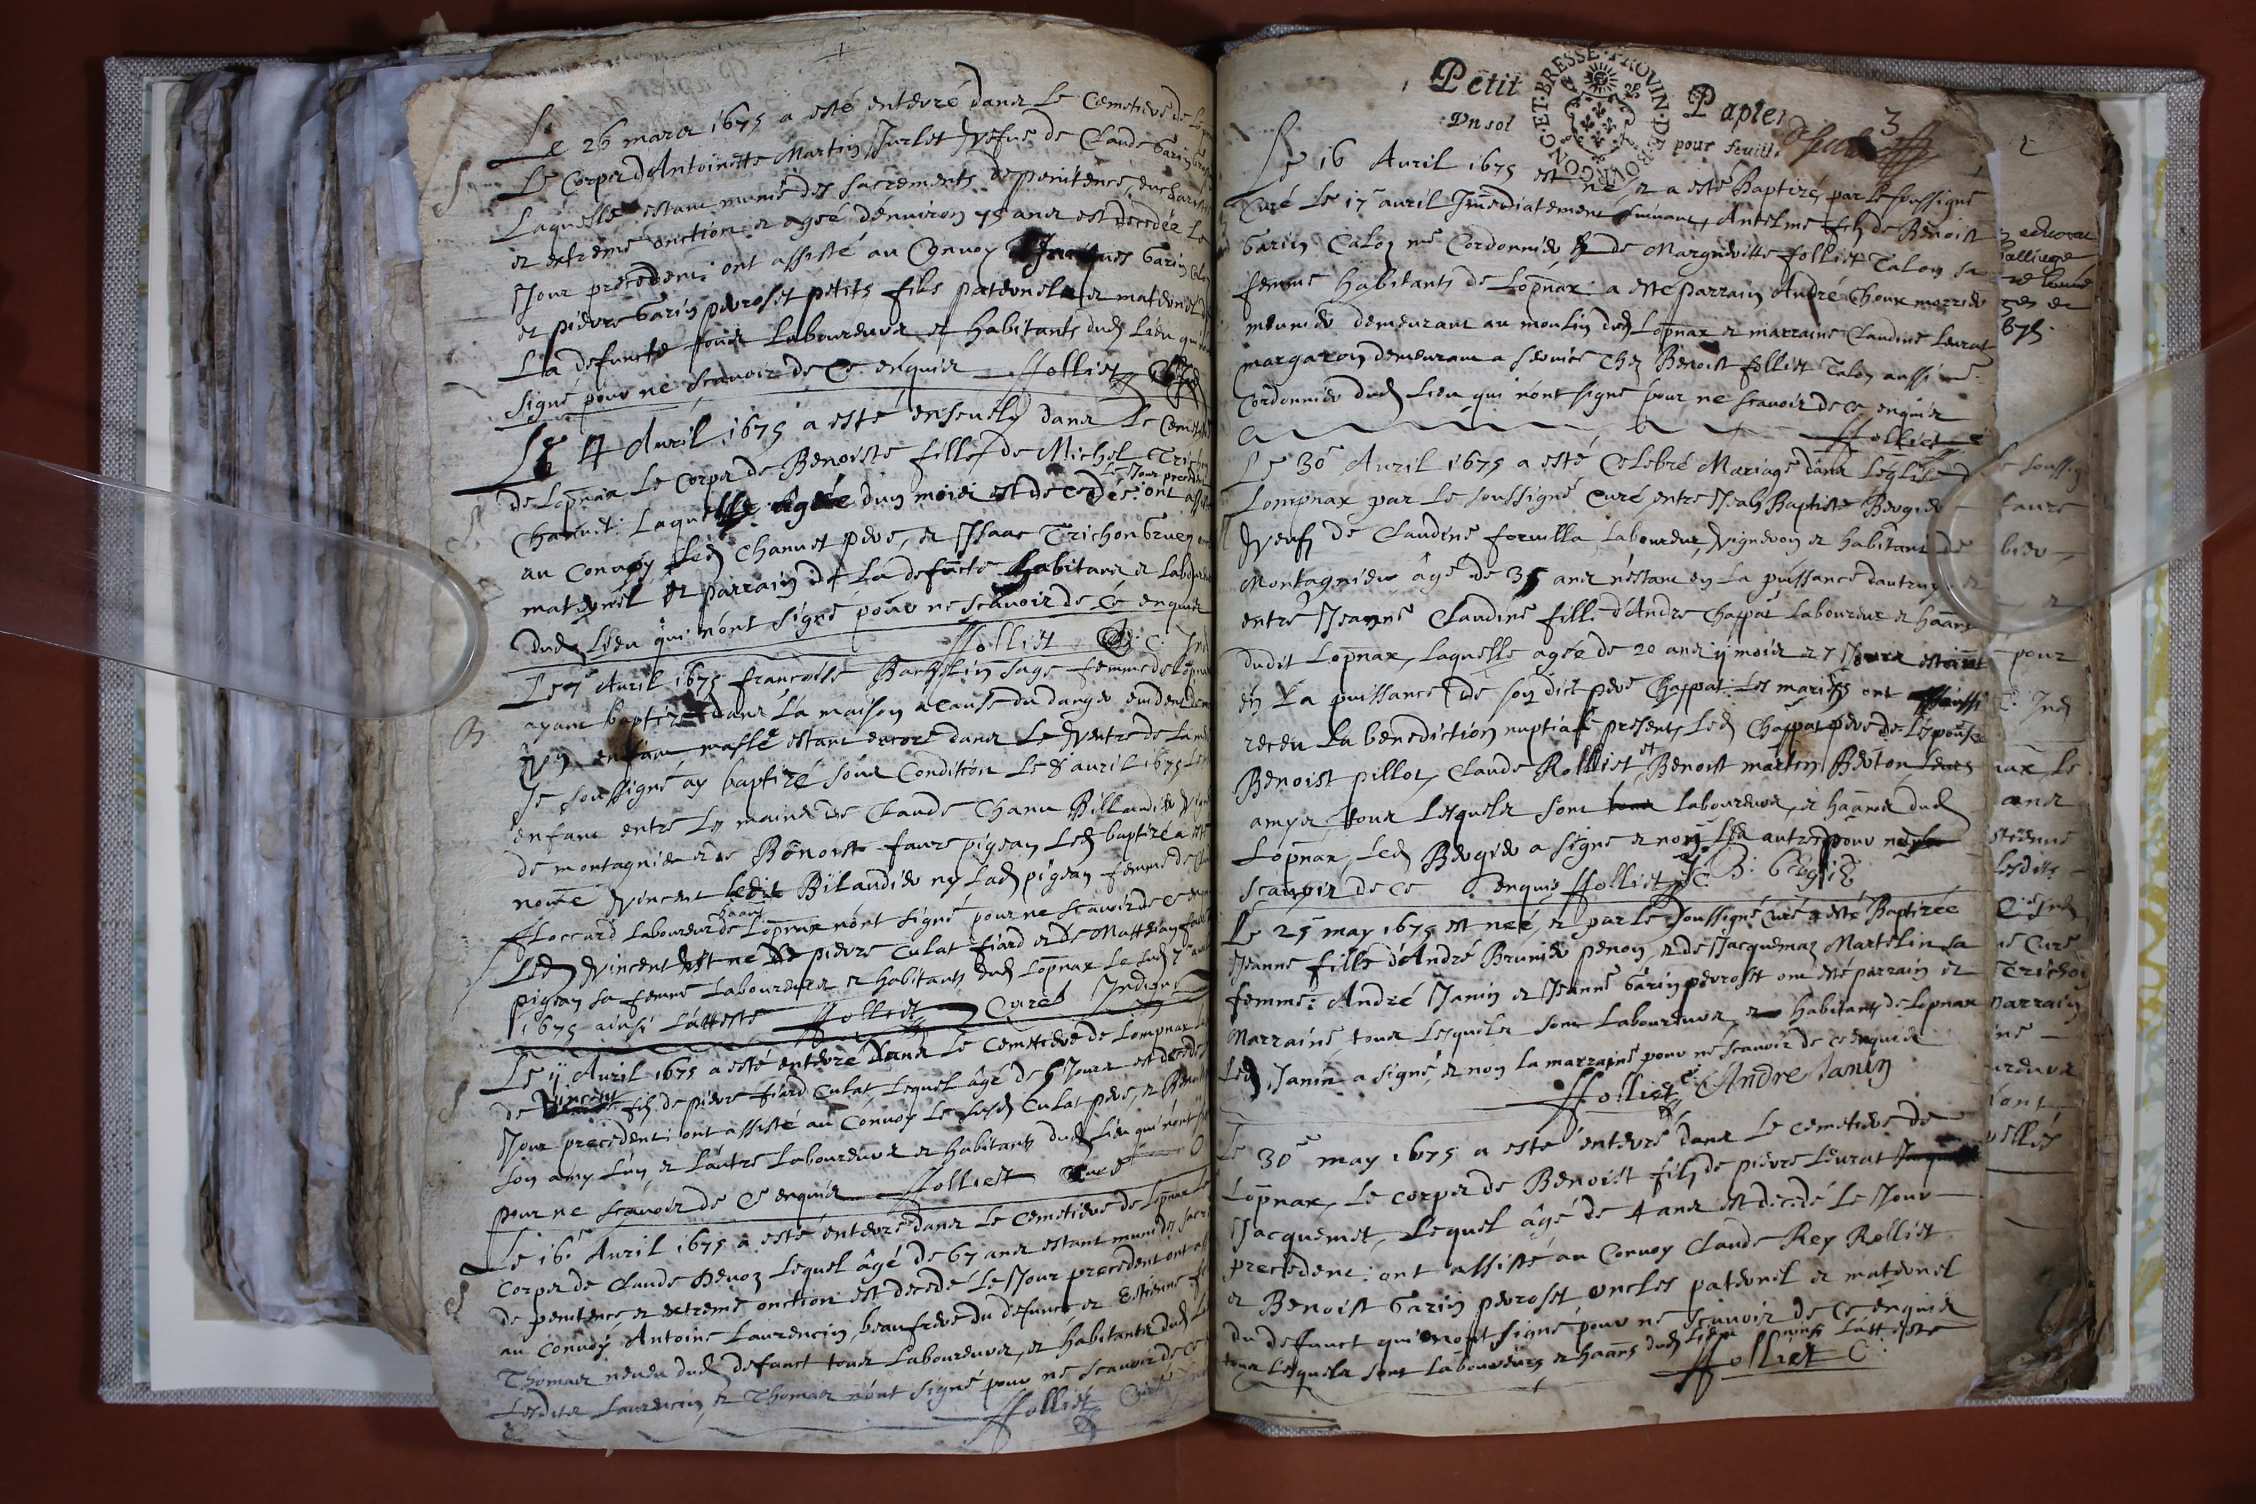 Le 26 mars 1675 a esté enterré dans le Cemetiere de
Le Corps d'Antoinette Martin Jurlet vefue de Claude Garin
Laquelle estant munie des sacrements de penitence, eucharistie
et extreme onction et agée d'enuiron 75 ans est decedée le
Jour precedent: ont assisté au Conuoy Garin
et pierre Garin perroset petits fils paternel et maternel
La defuncte tous Laboureurs et habitants dud lieu qui
signé pour ne scauoir de ce enquis ffolliet
Le 4 Auril 1675 a esté enseuely dans le Cemet
de Lopnax le Corps de Benoiste fille de Michel Trichon
Le Jour precedent
Chanuet: Laquelle Agée d'un mois est decedée: ont assisté
au Conuoy led Chanuet pere, et Isaac Trichon
maternel et parrain de La defuncte habitans et Laboureurs
dud lieu qui n'ont signé pour ne scauoir de ce enquis
ffolliet C: Ind
Le 7e Auril 1675 francoise sage femme de Lopnax
ayant baptizé dans la maison a cause du danger euident
Un enfant masle estant encore dans le ventre de la mere
Je soussigné ay baptizé sous Condition le 8 auril 1675
enfant entre les mains de Claude Chanu Billandier
de montagnieu et de Benoiste faure pigean Led baptizé a esté
nommé Vincent ledit Bilandier ny lad pigean femme de
haant
floccard Laboureur de Lopnax n'ont signé pour ne scauoir de ce
Led Vincent est ne de pierre Culat fiard et de Matthian faure
pigean sa femme Laboureurs et habitants dud Lopnax le sud 7e
1675 ainsi L'atteste ffolliet Curé Indigne
Le ij Auril 1675 a esté enterré dans le Cemetiere de Lompnax
de Vincent fils de pierre fiard Culat, Lequel âgé de Jours est decedé
Jour precedent: ont assisté au Conuoy le susd Culat pere, et Benoist
son amy L'un et L'autre Laboureurs et habitants dud lieu qui n'ont
pour ne scauoir de ce enquis ffolliet Curé
Le 16e Auril 1675 a esté enterré dans le Cemetiere de Lopnax
Corps de Claude Lequel âgé de 67 ans estant muni des
de penitence, et extreme onction est decedé le Jour precedent ont
au Conuoy Antoine Laurencin beaufrere du defunct et Estienne
Thomas neueu dud defunct tous Laboureurs, et habitants dud
Lesdits Laurencin, et Thomas n'ont signé pour ne scauoir de ce
ffolliet Curé
Petit Papier
Un sol pour feuille
BOVRGONG·ET·BRESSE·PROVIN·DE
3
Le 16 Auril 1675 est né, et a esté Baptizé par le soussigné
Curé Le 17 auril Immediatement suiuant, Antelme fils de Benoist
Garin Calon me Cordonnier et de Margueritte folliet Talon sa
femme habitants de Lopnax: a esté parrain André Choux
meunier demeurant au moulin dud Lopnax et marraine Claudine Leurat
margaron demeurant a seruice Chez Benoist folliet Talon aussi me
Cordonnier dud lieu qui n'ont signé pour ne scauoir de ce enquis
ffolliet C
Le 30e Auril 1675 a esté Celebré Mariage dans L'eglise d
Lompnax par Le soussigné Curé entre Jean Baptiste Bergier
Veuf de Claudine foruilla Laboureur, Vigneron et habitant de
Montagnieu âgé de 35 ans n'estant en La puissance d'autruy et
entre Jeanne Claudine fille d'André Chappat Laboureur et haant
dudit Lopnax, Laquelle agée de 20 ans ij mois 27 Jours estant
en La puissance de son dict pere Chappat: Les mariés ont
receu La benediction nuptiale, presents Led Chappat pere de L'espouse
Benoist pillot, Claude Rolliet et Benoist martin Berton
amys tous Lesquels sont Laboureurs, et haants dud
Lopnax, Led Bergier a signé et non Les autres pour ne
scauoir de ce enquis ffolliet C J B: Bergier
Le 25 may 1675 est neé, et par Le soussigné Curé a esté Baptizée
Jeanne fille d'André Brunier penon, et de Jacquemaz Martelin sa
femme: André Janin et Jeanne Garin perroset ont esté parrain et
Marraine tous Lesquels sont Laboureurs, et habitants de Lopnax
Led Janin a signé, et non la marraine pour ne scauoir de ce enquise
ffolliet C Andre Ianin
Le 30e may 1675 a esté enterré dans Le Cemetiere de
Lopnax, Le corps de Benoist fils de pierre Leurat
Jacquemet, Lequel âgé de 4 ans est decedé Le Jour
precedent: ont assisté au Conuoy Claude Rey Rolliet
et Benoist Garin perroset oncles paternel et maternel
du defunct qui n'ont signé pour ne scauoir de ce enquis
tous Lesquels sont Laboureurs et haants dud lieu ainsi L'atteste
ffolliet C: